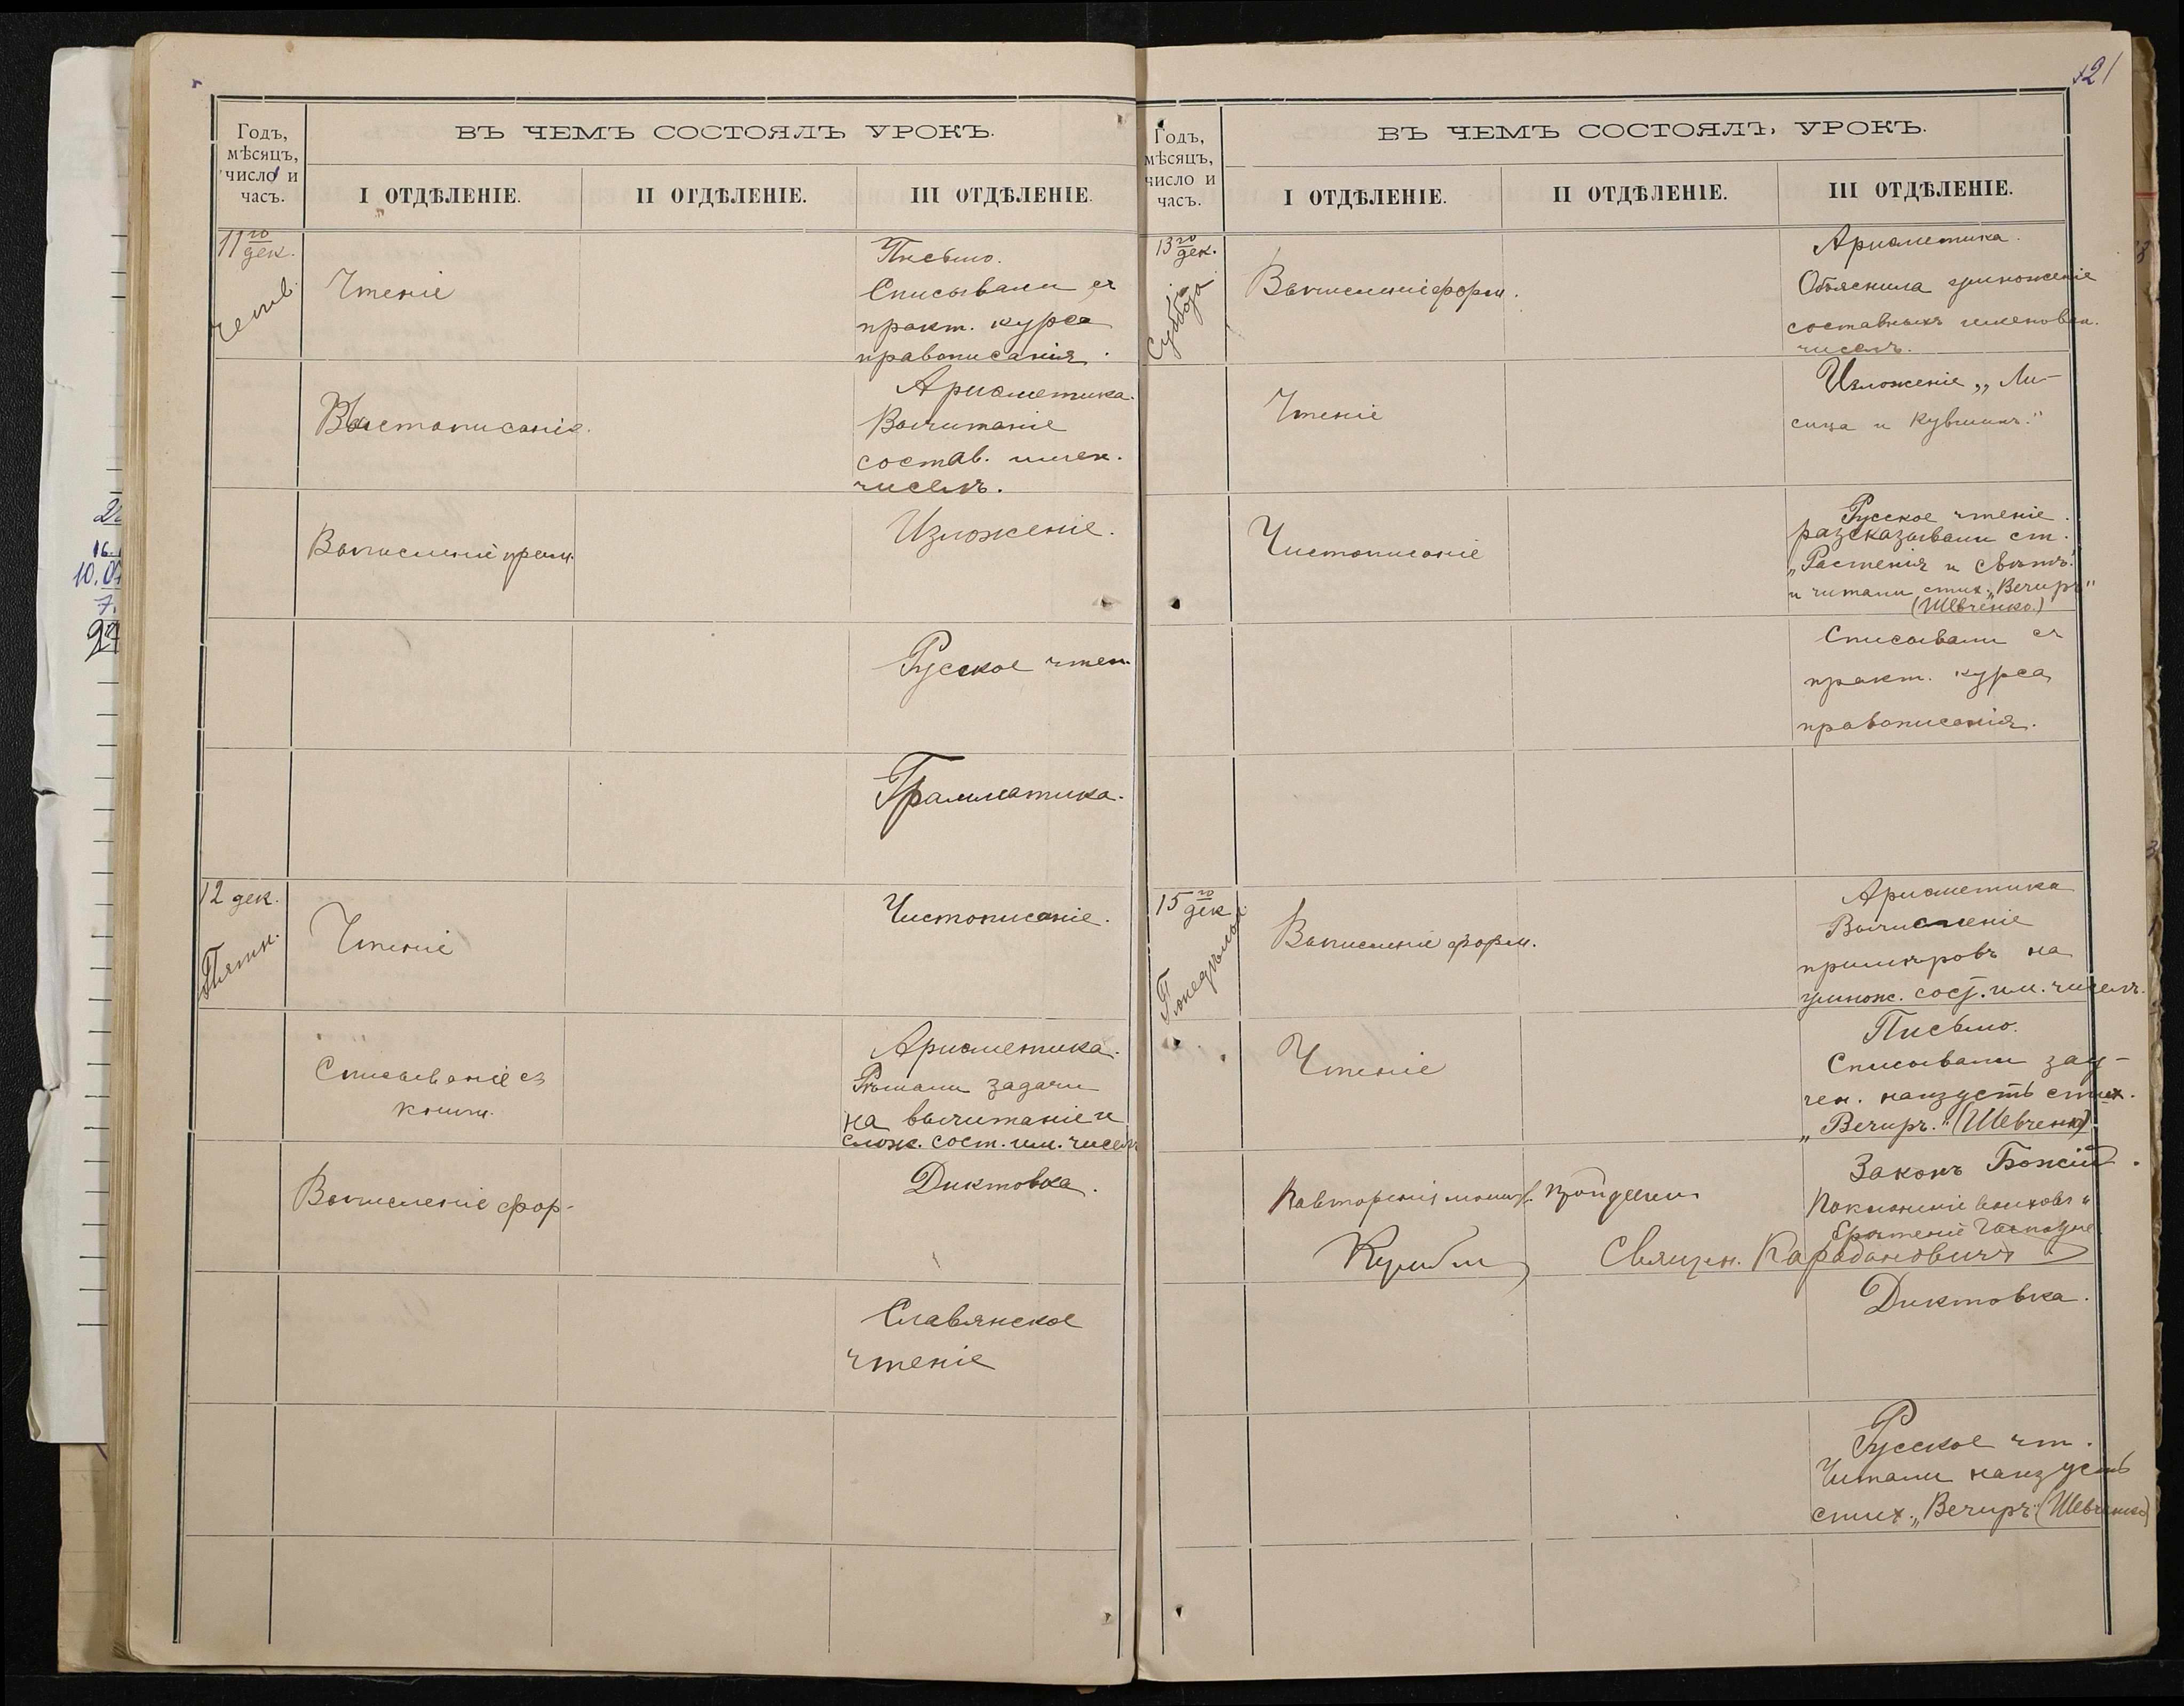 ВЪ ЧЕМЪ СОСТОЯЛЪ УРОКЪ.
Годъ,
мѣсяцъ,
число и
часъ.
I ОТДѢЛЕНІЕ.
II ОТДѢЛЕНІЕ.
III ОТДѢЛЕНІЕ.
11го
дек.
Четв.
Чтеніе
Письмо.
Списывали съ
практ. курса
правописанія.
Чистописаніе.
Ариѳметика.
Вычитаніе
состав. имен.
чиселъ.
Вычисленіе
Изложеніе.
Русское чтен.
Грамматика.
12 дек.
Пятн.
Чтеніе
Чистописаніе.
Списываніе съ
книги.
Ариѳметика.
Рѣшали задачи
на вычитаніе и
слож. сост. им. чиселъ
Вычисленіе фор-
Диктовка.
Славянское
чтеніе
21
ВЪ ЧЕМЪ СОСТОЯЛЪ УРОКЪ.
Годъ,
мѣсяцъ,
число и
часъ.
I ОТДѢЛЕНІЕ.
II ОТДѢЛЕНІЕ.
III ОТДѢЛЕНІЕ.
13го
дек.
Суббота
Вычисленіе форм.
Ариѳметика.
Объяснила умноженіе
составныхъ именован.
чиселъ.
Чтеніе
Изложеніе „Ли-
сица и Кувшинъ."
Чистописаніе
Русское чтеніе.
разсказывали ст.
„Растенія и свѣтъ"
и читали стих. „Вечиръ"
(Шевченко.)
Списывали съ
практ. курса
правописанія.
15го
дек.
Понедѣльн.
Вычисленіе форм.
Ариѳметика
Вычисленіе
примѣровъ на
умнож. сост. им. чиселъ.
Чтеніе
Письмо.
Списывали зау-
чен. наизусть стих.
„Вечиръ." (Шевченко)
Законъ Божій.
Повтореніе молитв.
Поклоненіе волхвовъ и
Срѣтеніе Господне
Священ. Карабановичъ
Диктовка.
Русское чт.
Читали наизусть
стих. „Вечиръ" (Шевченко)